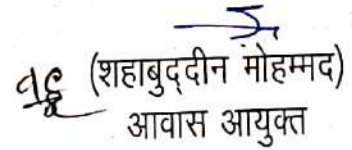 (शहाबुद्दीन मोहम्मद)
आवास आयुक्त